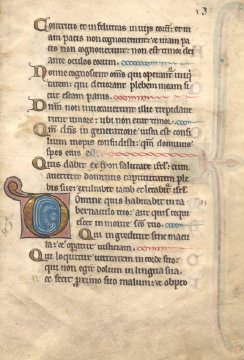 Contricio et infelicitas in uiis eorum et ui
am pacis non cognouerunt non est timor dei
ante oculos eorum.
Nonne cognoscent omnes qui operantur iniqui
tatem: qui deuorant plebem meam si
cut escam panis.
Dominum non inuocauerunt illic trepidauer
unt timore: ubi non erat timor.
Quoniam dominus in generatione iusta est consi
lium inopis confudistis: quoniam dominus
spes eius est.
Quis dabit ex syon salutare israel: cum
auerterit dominus captiuitatem ple
bis sue exultabit iacob et letabitur israel.
Domine quis habitabit in ta
bernaculo tuo: aut quis requi
escet in monte sancto tuo.
Qui ingreditur sine macu
la: et operatur iusticiam.
Qui loquitur ueritatem in corde suo:
qui non egit dolum in lingua sua.
Nec fecit proximo suo malum: et obpro